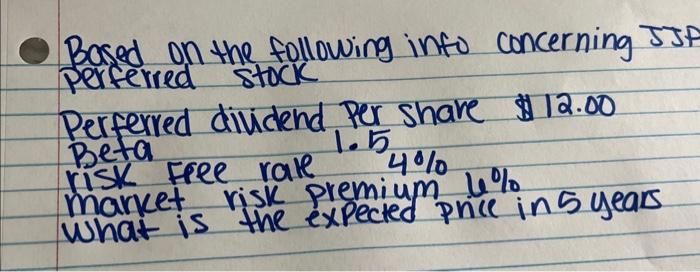 Based on the following info concerning JJP
perferred stock
Perferred dividend per share $12.00
Beta 1.5
risk Free rate 4%
market risk premium 6%
what is the expected price in 5 years